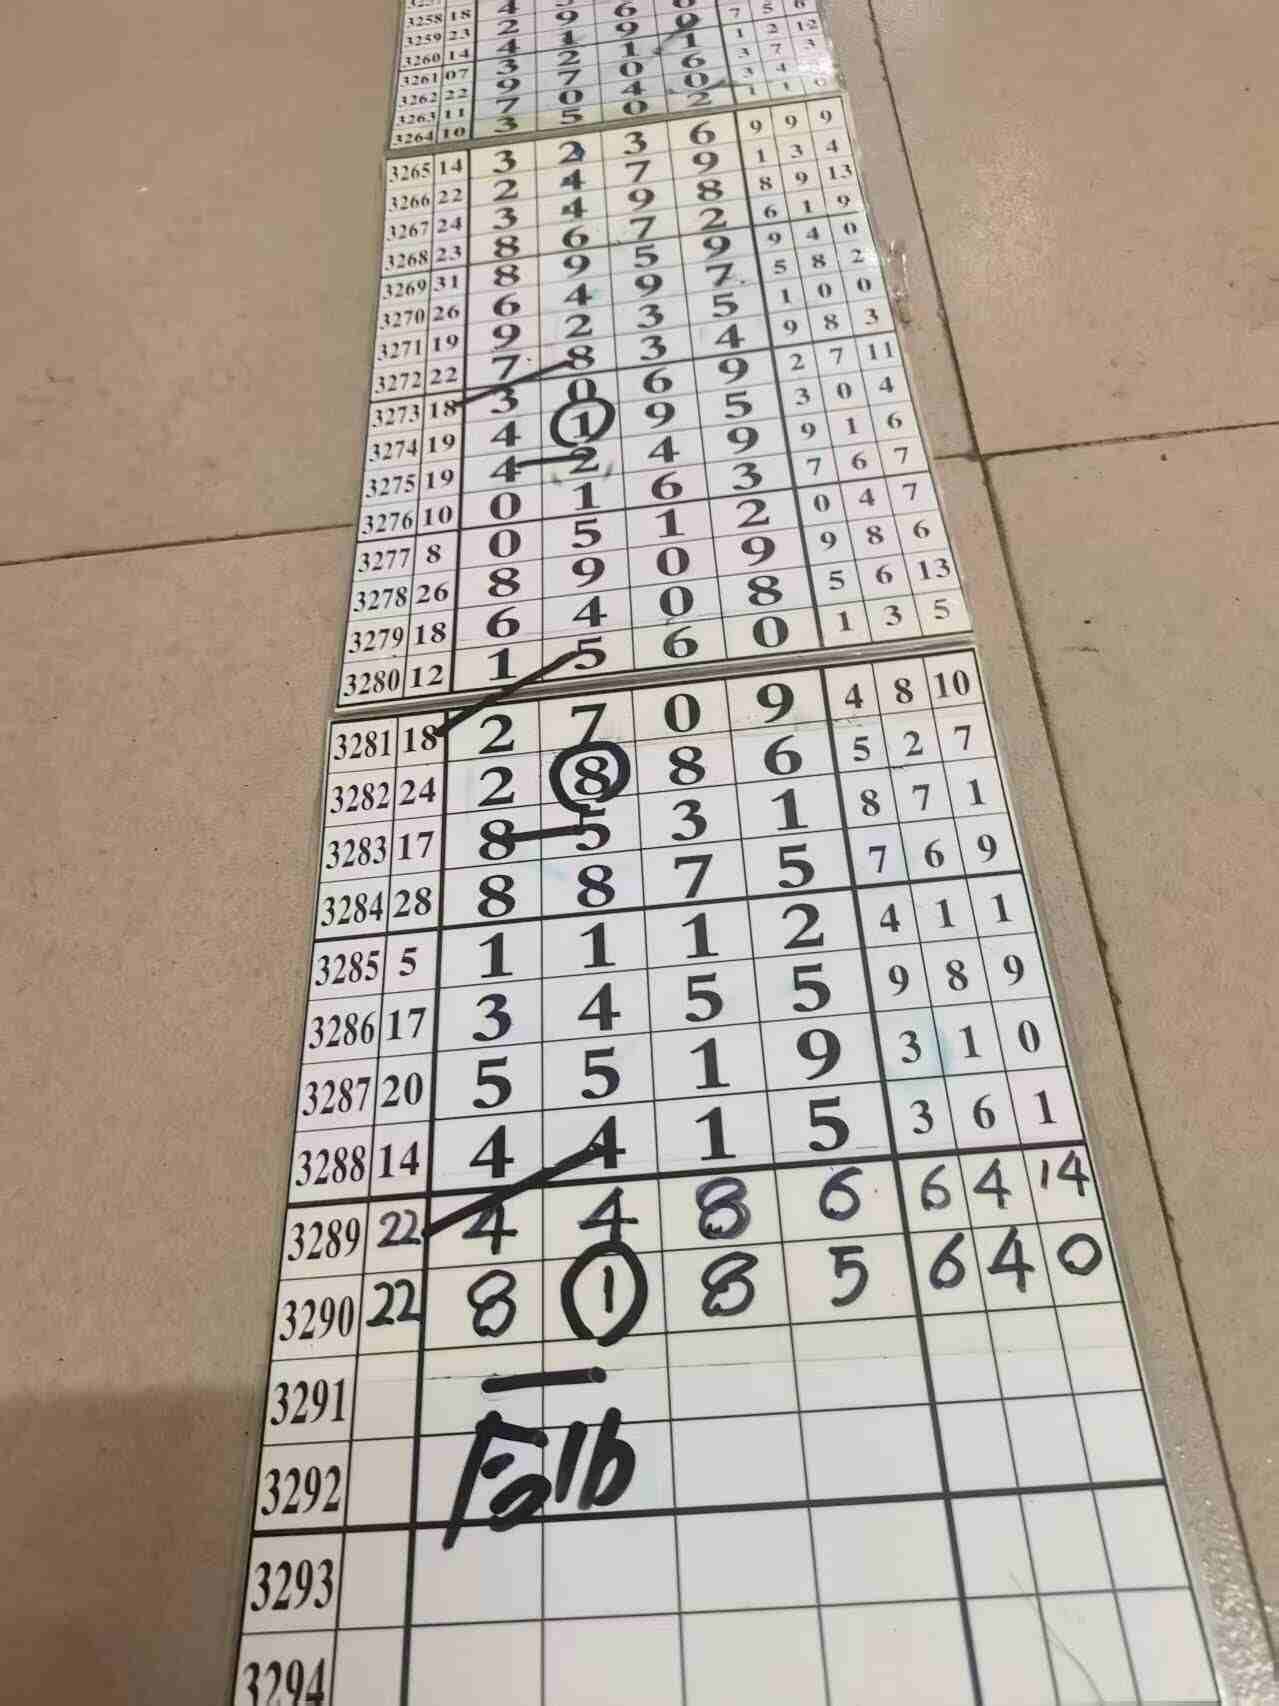 3258 18 4 9 6 0 7 5 6
3259 23 2 1 9 1 2 12
3260 14 4 2 1 1 3 7 3
3261 07 3 7 0 6 3 4
3262 22 9 0 4 0 1 1
3263 11 7 5 0 2
3264 10 3
3265 14 3 2 3 6 9 9 9
3266 22 2 4 7 9 1 3 4
3267 24 3 4 9 8 8 9 13
3268 23 8 6 7 2 6 1 9
3269 31 8 9 5 9 9 4 0
3270 26 6 4 9 7 5 8 2
3271 19 9 2 3 5 1 0 0
3272 22 7 8 3 4 9 8 3
3273 18 3 0 6 9 2 7 11
3274 19 4 1 9 5 3 0 4
3275 19 4 2 4 9 9 1 6
3276 10 0 1 6 3 7 6 7
3277 8 0 5 1 2 0 4 7
3278 26 8 9 0 9 9 8 6
3279 18 6 4 0 8 5 6 13
3280 12 1 5 6 0 1 3 5
3281 18 2 7 0 9 4 8 10
3282 24 2 8 8 6 5 2 7
3283 17 8 5 3 1 8 7 1
3284 28 8 8 7 5 7 6 9
3285 5 1 1 1 2 4 1 1
3286 17 3 4 5 5 9 8 9
3287 20 5 5 1 9 3 1 0
3288 14 4 4 1 5 3 6 1
3289 22 4 4 8 6 6 4 14
3290 22 8 1 8 5 6 4 0
3291
3292
3293
3294